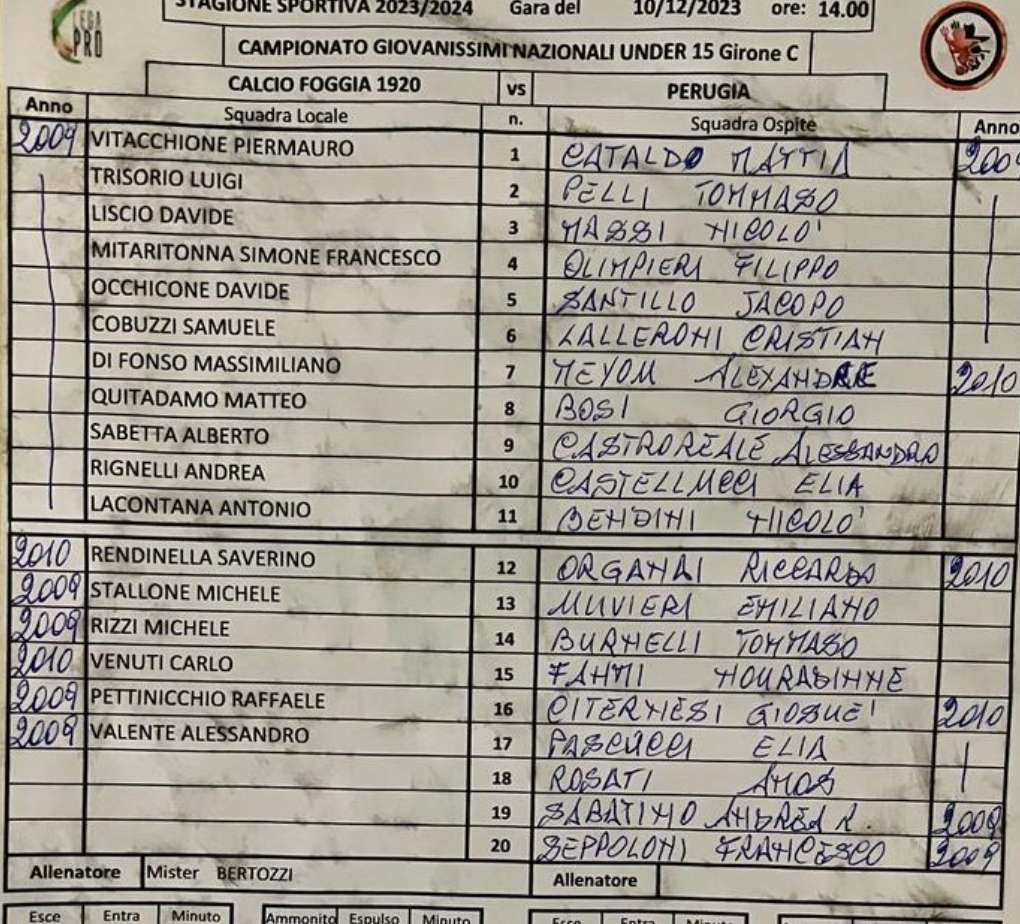 LEGA PRO
STAGIONE SPORTIVA 2023/2024 Gara del 10/12/2023 ore: 14.00
CAMPIONATO GIOVANISSIMI NAZIONALI UNDER 15 Girone C
CALCIO FOGGIA 1920 vs PERUGIA
Anno Squadra Locale n. Squadra Ospite Anno
2009 VITACCHIONE PIERMAURO 1 CATALDO MATTIA 2009
TRISORIO LUIGI 2 PELLI TOMMASO
LISCIO DAVIDE 3 MASSI NICOLO'
MITARITONNA SIMONE FRANCESCO 4 OLIMPIERI FILIPPO
OCCHICONE DAVIDE 5 SANTILLO JACOPO
COBUZZI SAMUELE 6 LALLERONI CRISTIAN
DI FONSO MASSIMILIANO 7 MEYOM ALEXANDRE 2010
QUITADAMO MATTEO 8 BOSI GIORGIO
SABETTA ALBERTO 9 CASTROREALE ALESSANDRO
RIGNELLI ANDREA 10 CASTELLUCCI ELIA
LACONTANA ANTONIO 11 BENDINI NICOLO'
2010 RENDINELLA SAVERINO 12 ORGANAI RICCARDO 2010
2009 STALLONE MICHELE 13 MUVIERI EMILIANO
2009 RIZZI MICHELE 14 BURNELLI TOMMASO
2010 VENUTI CARLO 15 FAHMI NOURADINNE
2009 PETTINICCHIO RAFFAELE 16 CITERNESI GIOSUE' 2010
2009 VALENTE ALESSANDRO 17 PASCUCCI ELIA
18 ROSATI AMOS
19 SABATINO ANDREA R. 2009
20 SEPPOLONI FRANCESCO 2009
Allenatore Mister BERTOZZI Allenatore
Esce Entra Minuto Ammonito Espulso Minuto Esce Entra Minuto